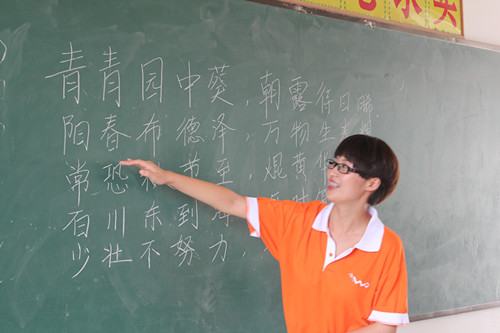 青青园中葵,朝露待日晞
阳春布德泽,万物生光
常恐秋节至,焜黄华
百川东到海,
少壮不努力,